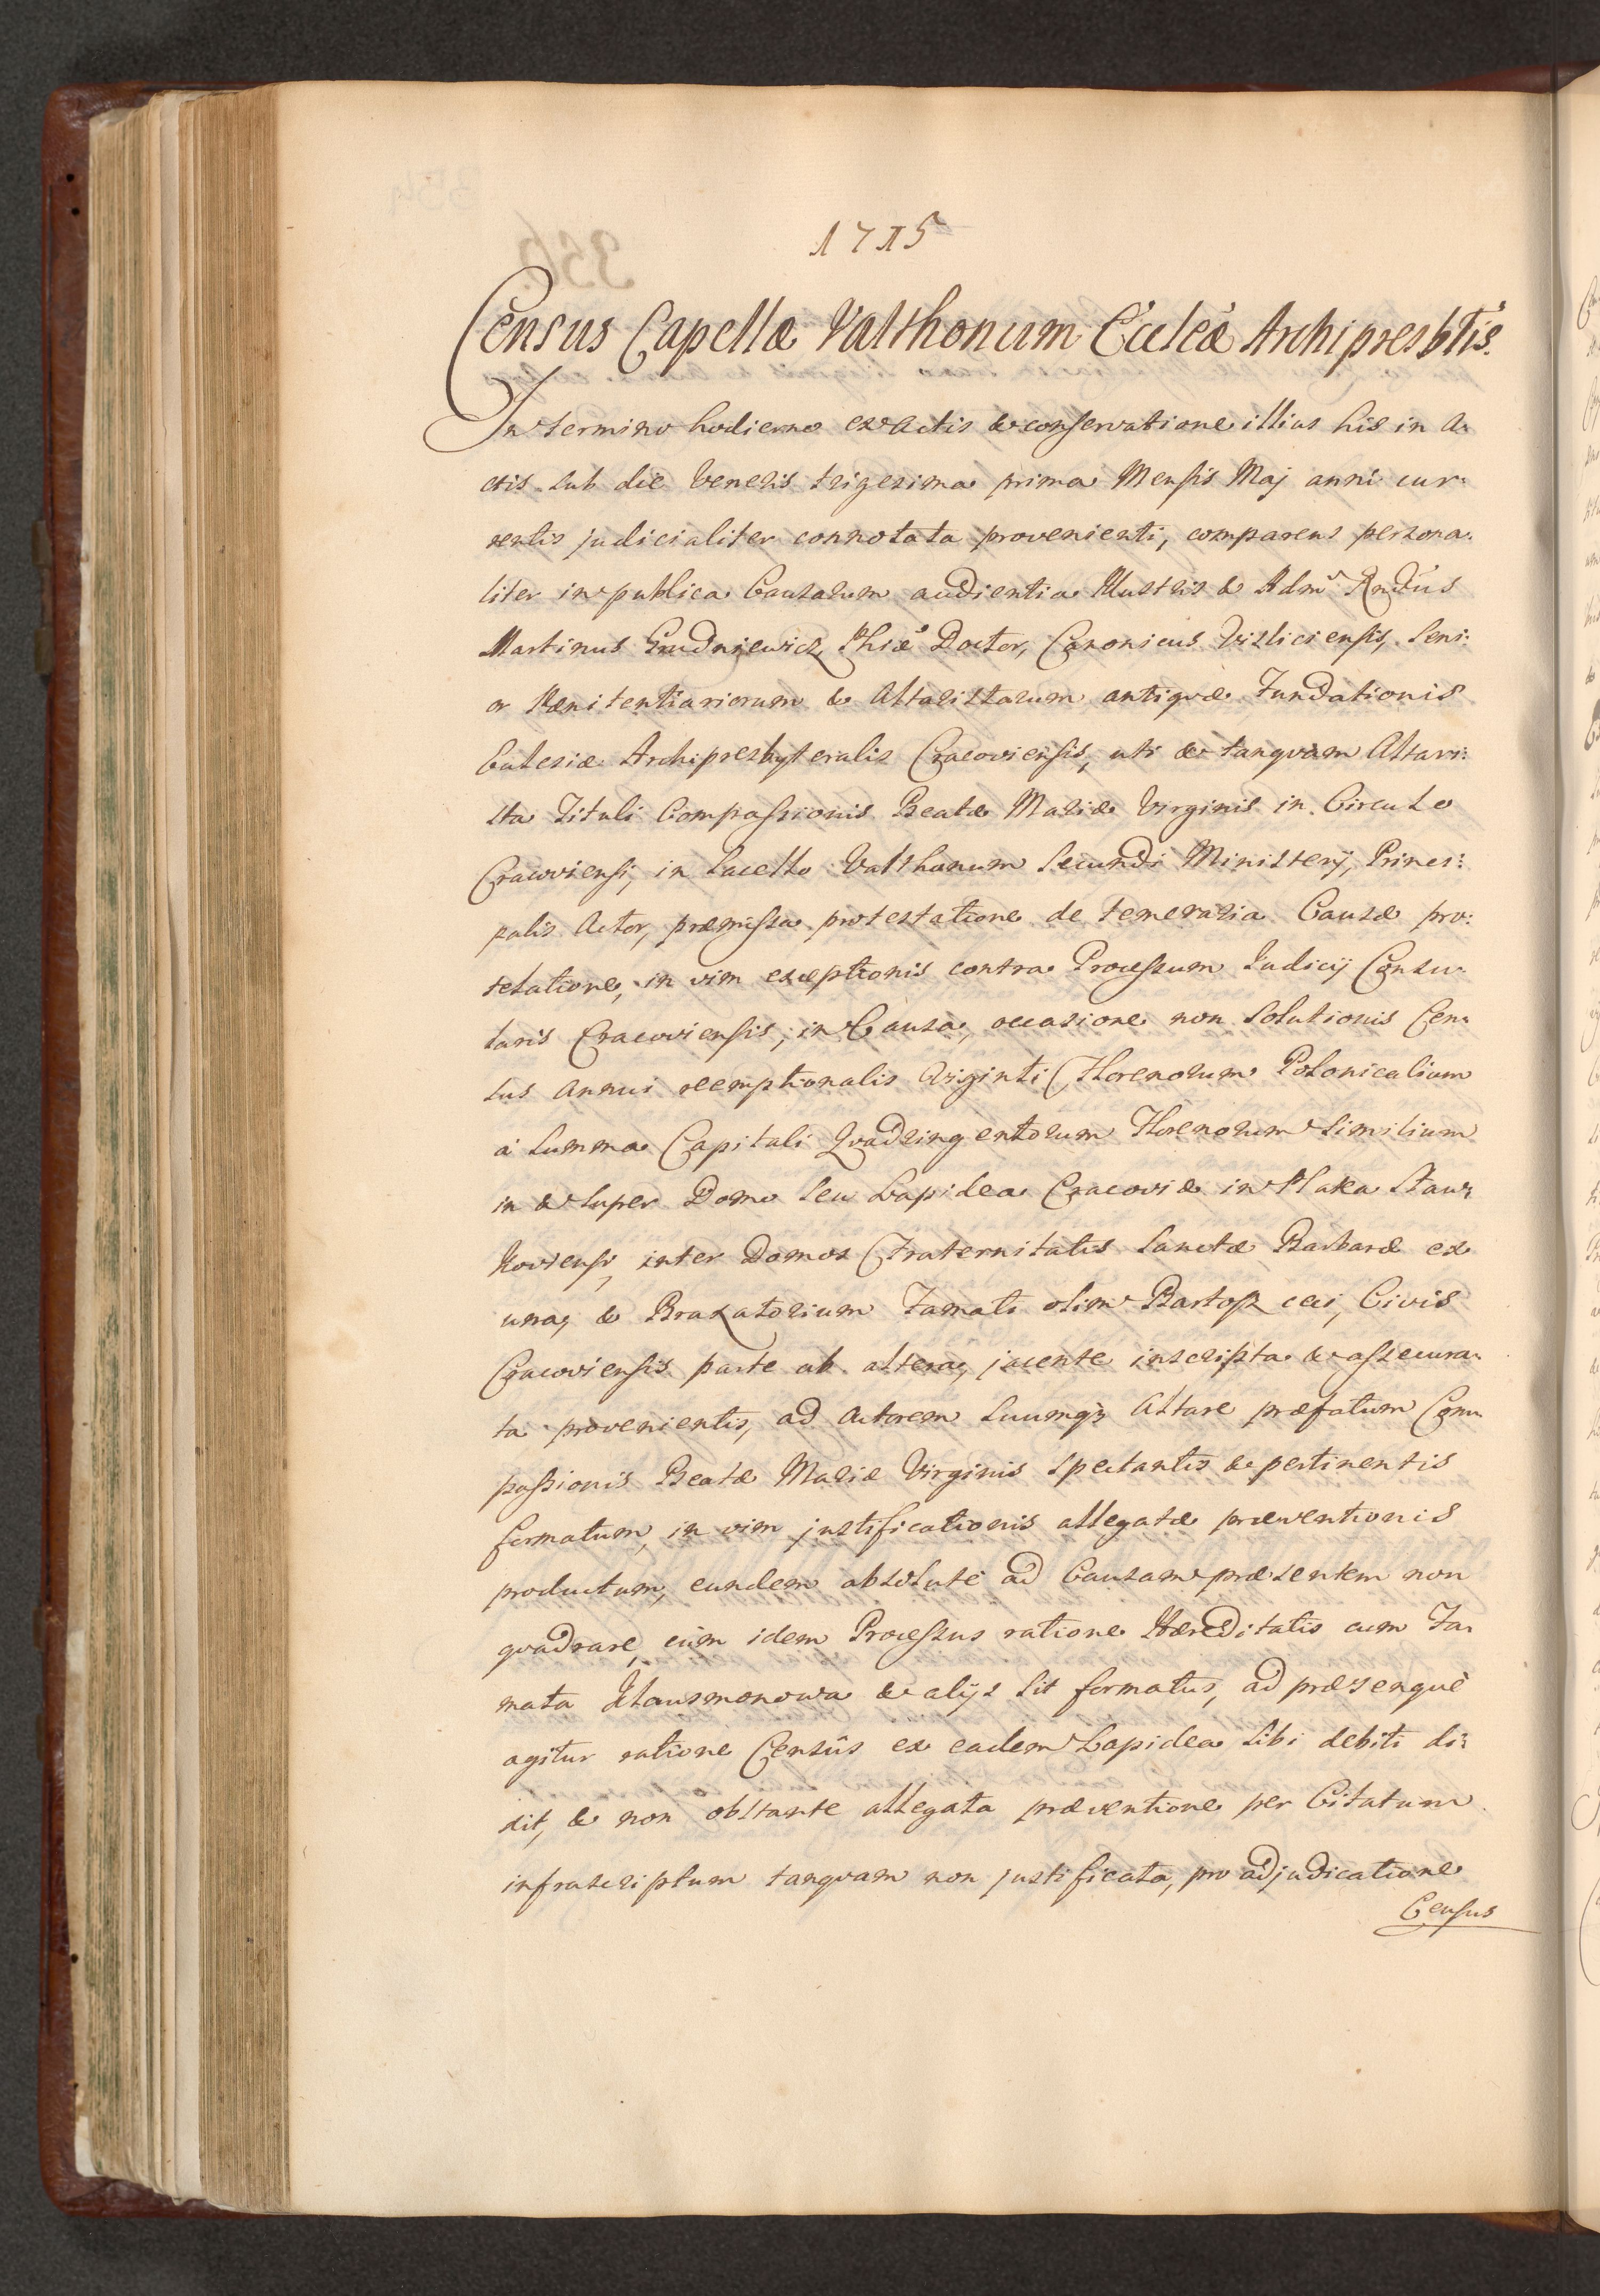 1715
Census Capellæ Valthonum Ecclæ Archipresbtis.
In termino hodierno ex Actis & conservatione illius his in A:
ctis sub die Veneris trigesima prima Mensis Maj anni cur:
rentis judicialiter connotata provenienti, comparens persona:
liter in publica Causarum audientia Illustris & Adm Rndus
Martinus Grudniewicz Phiæ Doctor, Canonicus Visliciensis, Seni:
or Pænitentiariorum & Altaristarum antiquæ Fundationis
Ecclesiæ Archipresbyteralis Cracoviensis, uti & tanquam Altari:
sta Tituli Compassionis Beatæ Mariæ Virginis in Circulo
Cracoviensi, in Sacello Valthonum secundi Ministerij, Princi:
palis Actor, præmissa protestatione de temeraria Causæ pro:
telatione, in vim exceptionis contra Processum Judicij Consu:
laris Cracoviensis, in Causa, occasione non solutionis Cen:
sus Annui reemptionalis Viginti Florenorum Polonicalium
à Summa Capitali Quadringentorum Florenorum similium
in & super Domo seu Lapidea Cracoviæ in Platea Slaw:
koviensi, inter Domos Fraternitatis Sanctæ Barbaræ ex
una, & Braxatorium Famati olim Bartosz cei, Civis
Cracoviensis parte ab altera, jacente inscripta & assecura:
ta provenientis, ad Actorem suumq Altare præfatum Com:
passionis Beatæ Mariæ Virginis spectantis & pertinentis
formatum, in vim justificationis allegatæ præventionis
productum, eundem absolutè ad Causam præsentem non
quadrare, cum idem Processus ratione Hæreditatis cum Fa:
mata Klausmonowa & alijs sit formatus, ad præsensquè
agitur ratione Censûs ex eadem Lapidea sibi debiti di:
xit, & non obstante allegata præventione per Citatum
infrascriptum tanquam non justificata, pro adjudicatione
Census